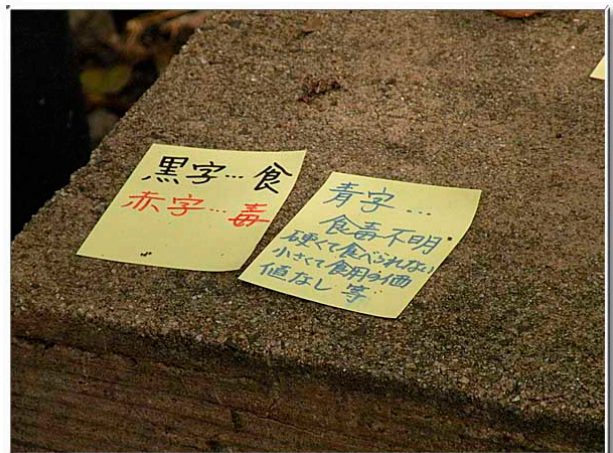 黒字…食
赤字…毒
青字…
食毒不明
硬くて食べられない
小さくて食用の価
値なし 等